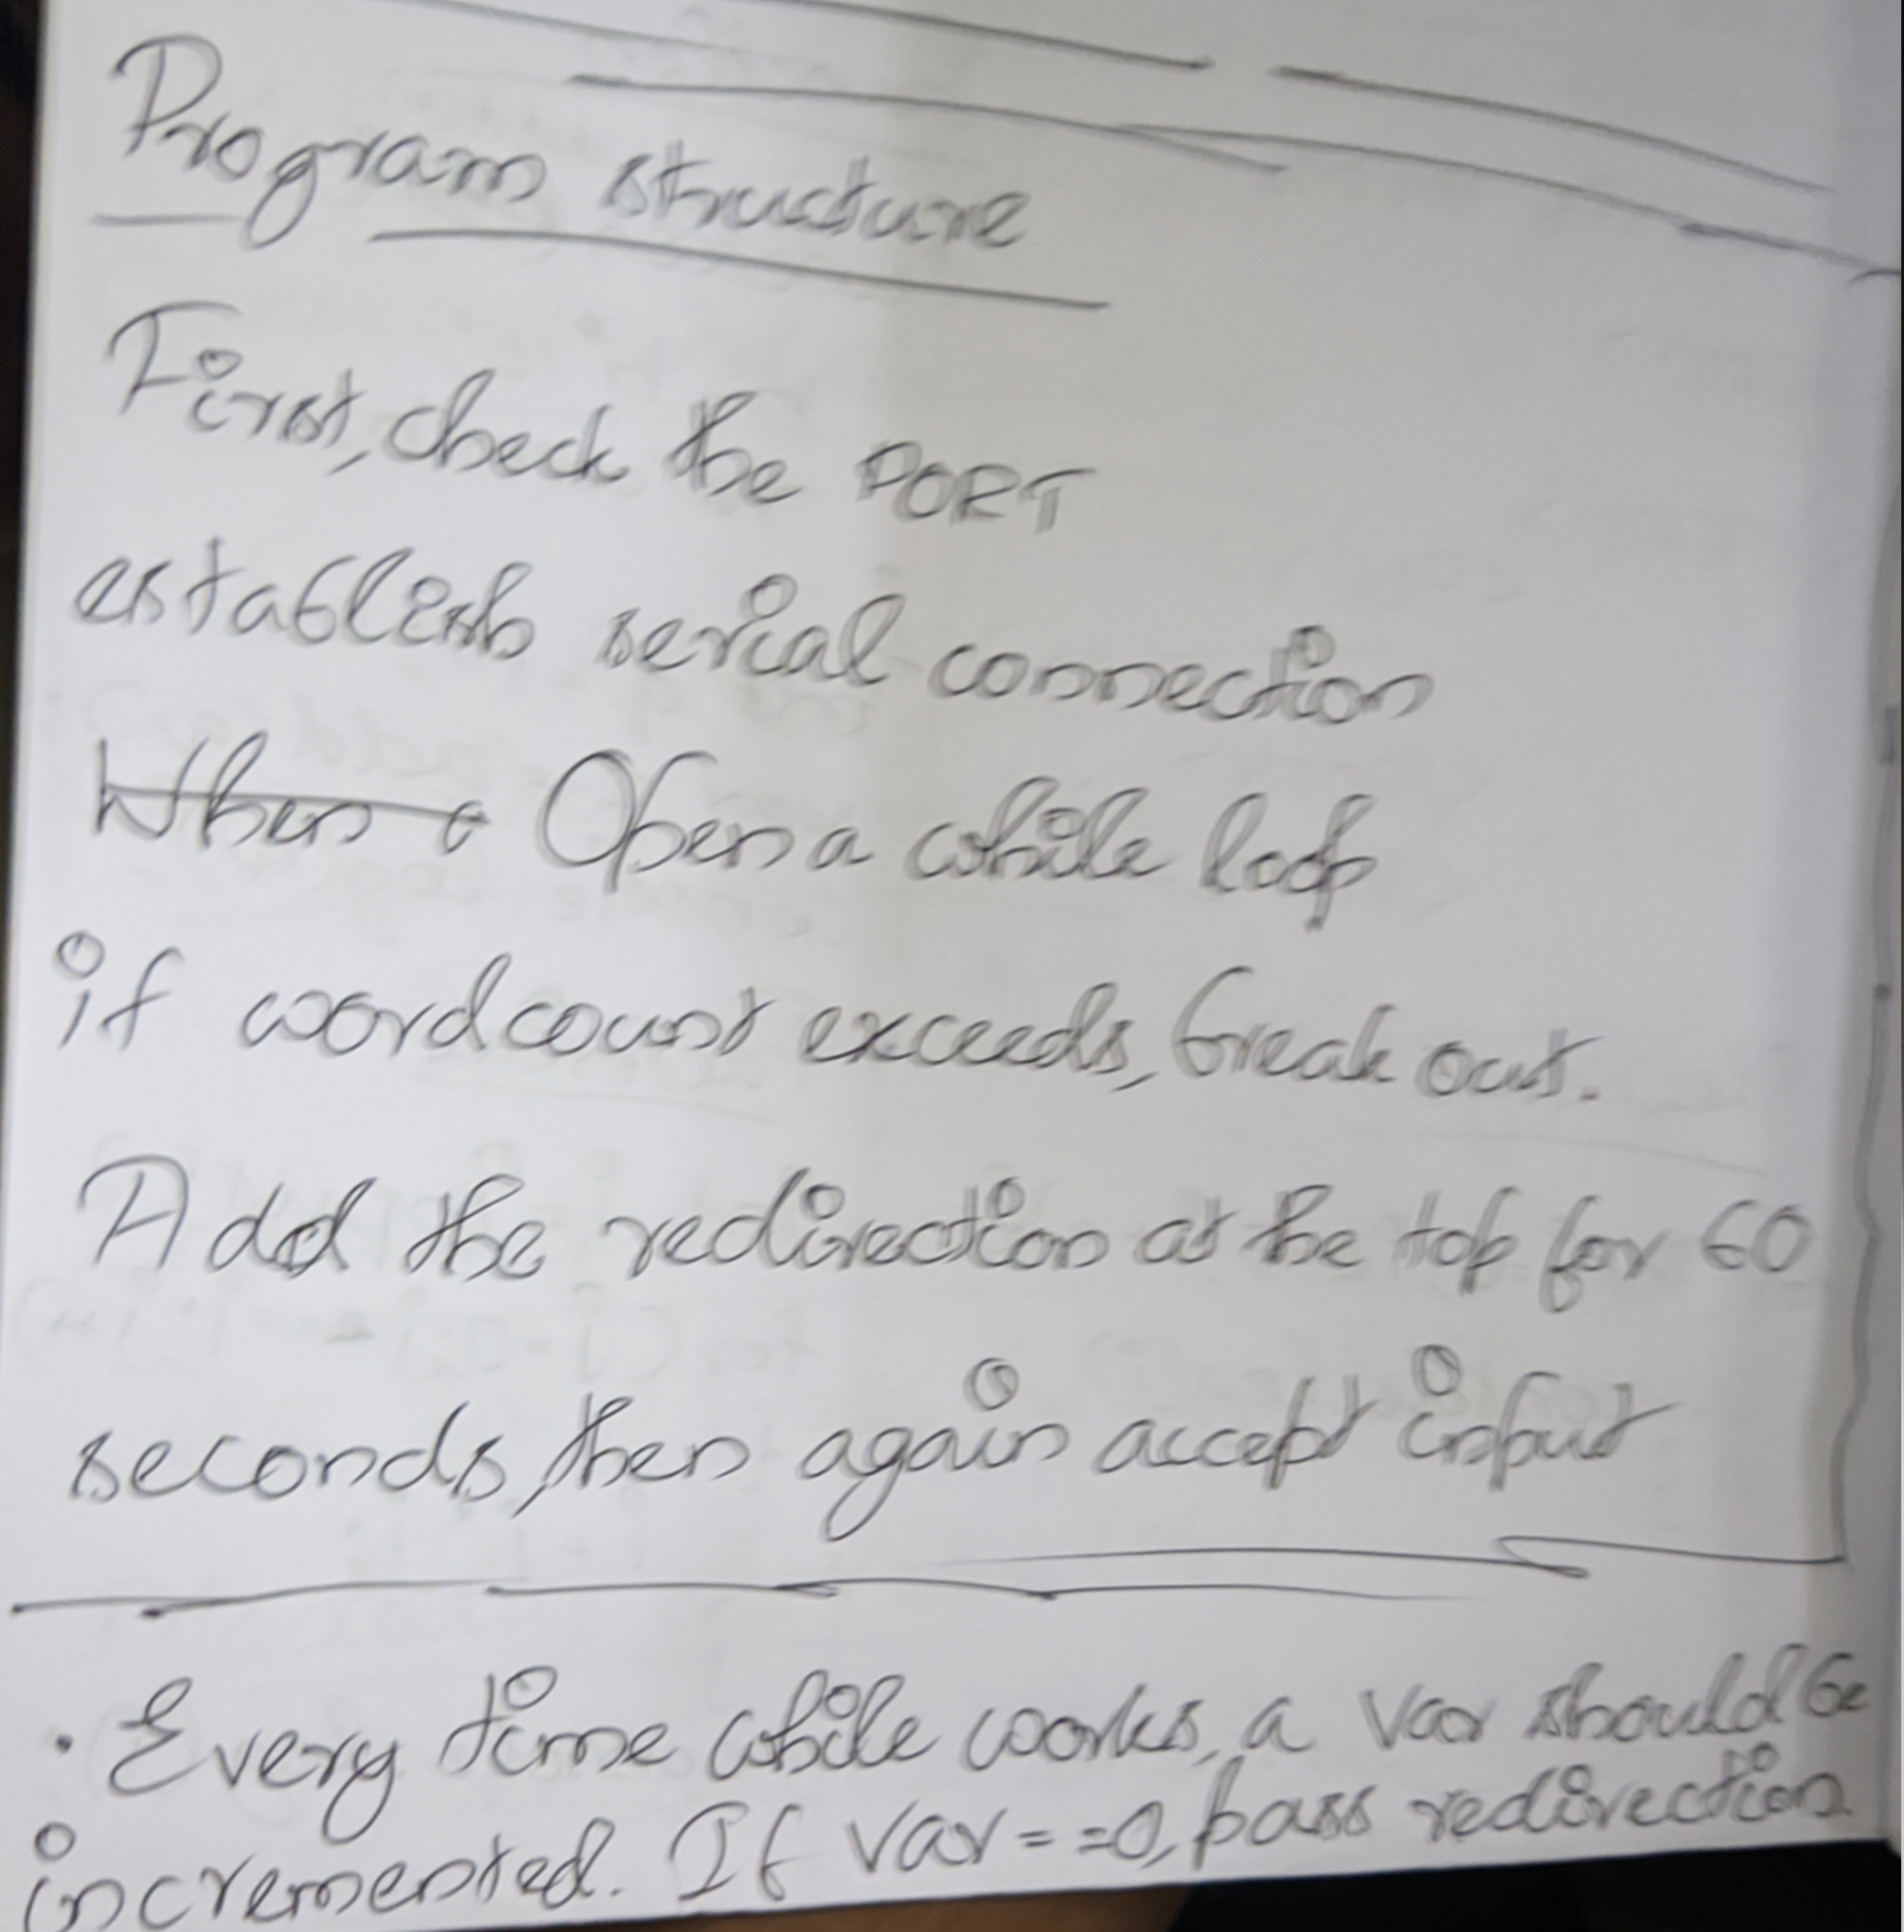 Program structure
First, check the PORT
establish serial connection
When o Open a while loop
if wordcount exceeds, break out.
Add the redirection at the top for 60
seconds, then again accept input
. Every time while works, a var should be
incremented. If var==0, pass redirection